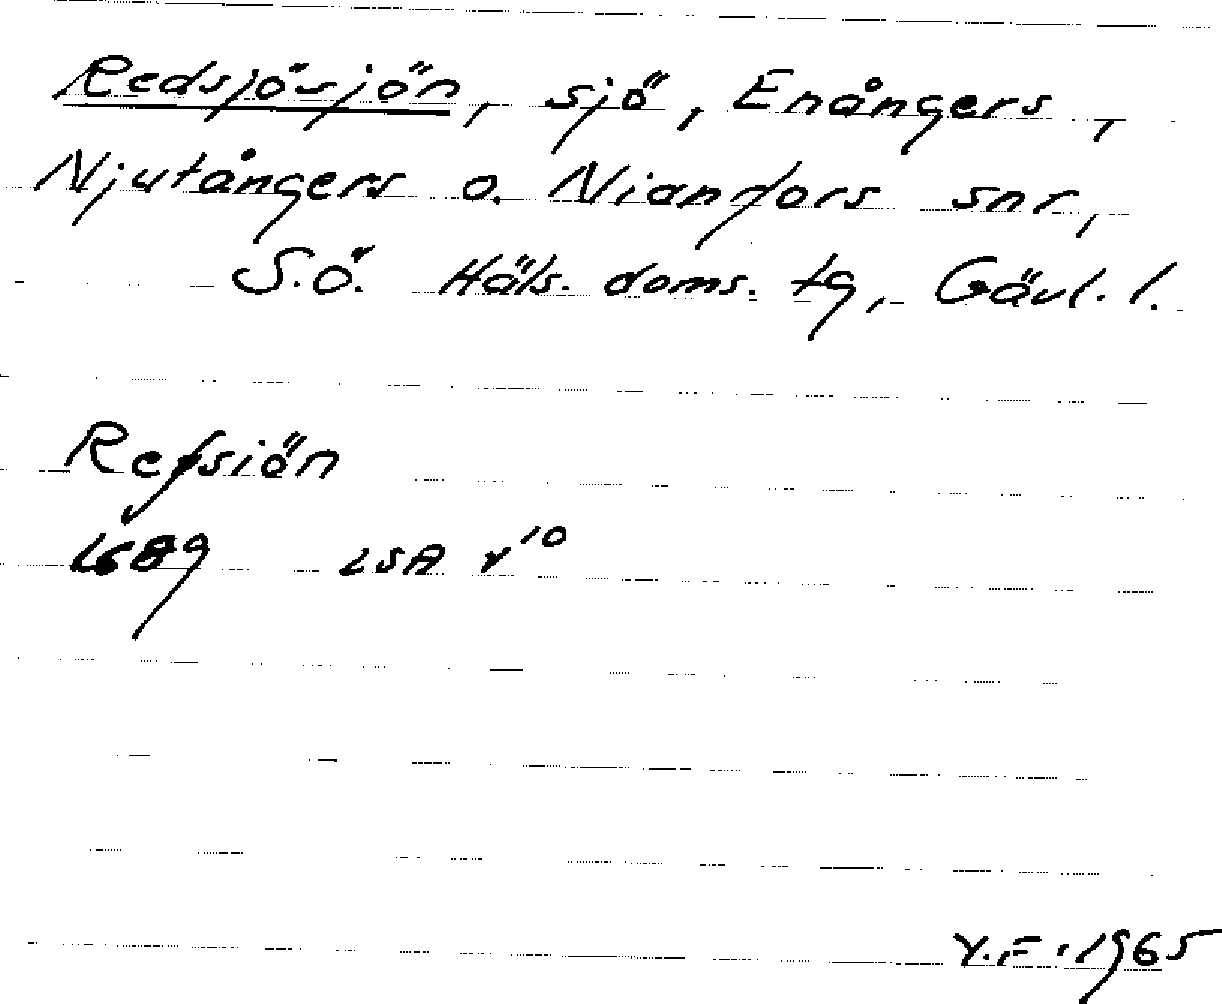 Redsjösjön, sjö, Enångers,
Njutångers o. Nianfors snr,
S.Ö. Häls. doms. tg, Gävl. l.
Refsiön
1689 LSA v¹⁰
Y.F. 1965